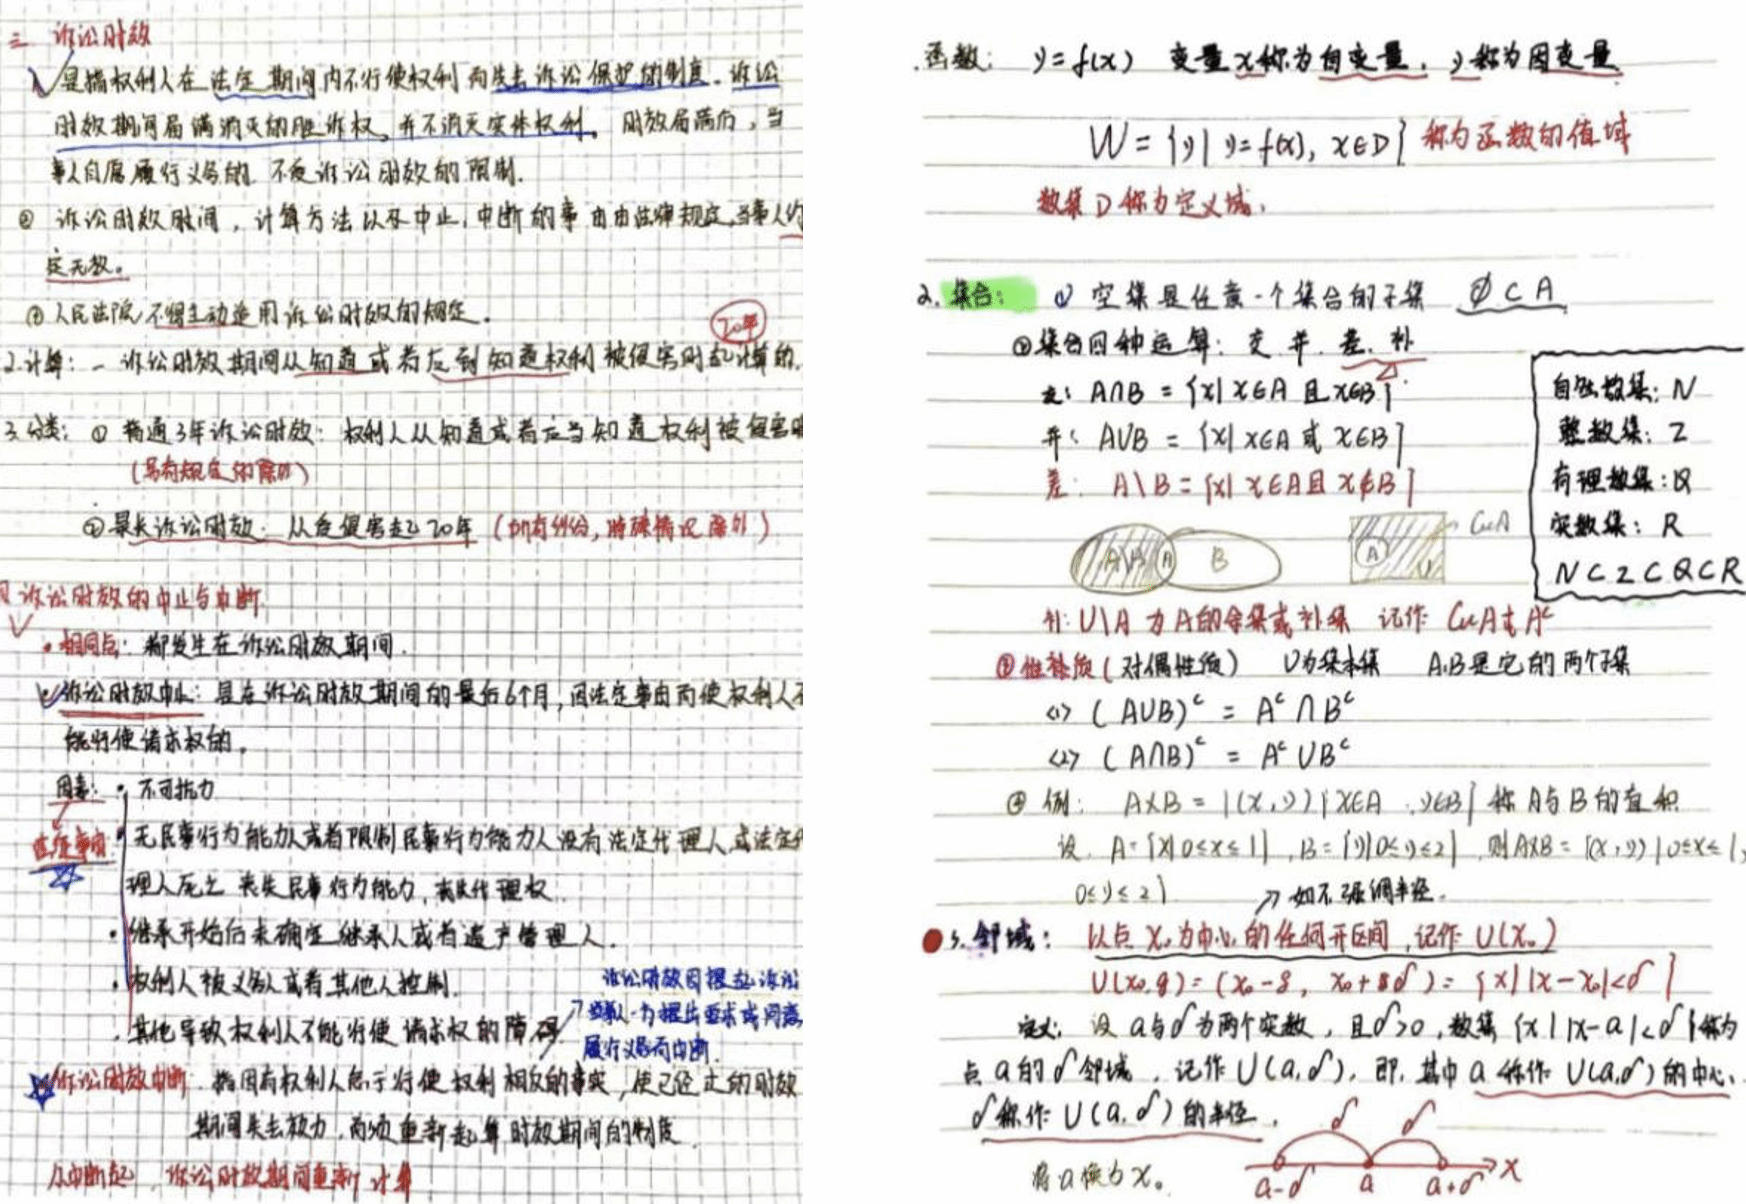 三 诉讼时效
1. 是指权利人在法定期间内不行使权利而失去诉讼保护的制度。诉讼
时效期间届满消灭的胜诉权,并不消灭实体权利。时效届满后,当
事人自愿履行义务的 不受诉讼时效的限制.
② 诉讼时效时间,计算方法以及中止,中断的事由由法律规定,当事人约
定无效。
③人民法院不得主动适用诉讼时效的规定.
20年
2.计算:一 诉讼时效期间从知道或者应到知道权利被侵害时起计算的.
3.分类:① 普通3年诉讼时效:权利人从知道或者应当知道权利被侵害时
(另有规定的除外)
②最长诉讼时效:从受侵害起20年(如有纠纷,特殊情况除外)
诉讼时效的中止与中断.
• 相同点:都发生在诉讼时效期间.
诉讼时效中止:是在诉讼时效期间的最后6个月,因法定事由而使权利人不
能行使请求权的。
因素:• 不可抗力
法定事项
• 无民事行为能力人或者限制民事行为能力人没有法定代理人或法定代
理人死亡 丧失民事行为能力,丧失代理权.
• 继承开始后未确定继承人或者遗产管理人.
• 权利人被义务人或者其他人控制.
• 其他导致权利人不能行使请求权的障碍
诉讼时效因提起诉讼
当事人一方提出要求或同意
履行义务而中断.
诉讼时效中断.指因有权利人怠于行使权利相反的事实,使已经走的时效
期间失去效力,而须重新起算时效期间的制度.
从中断起,诉讼时效期间重新计算
.函数: y=f(x) 变量x称为自变量.y称为因变量
W={y|y=f(x), x∈D} 称为函数的值域
数集D称为定义域.
2.集合: ① 空集是任意一个集合的子集 ∅⊂A
②集合四种运算:交 并.差.补
交:A∩B={x|x∈A且x∈B}
并:A∪B={x|x∈A或x∈B}
差: A\B={x|x∈A且x∉B}
自然数集:N
整数集:Z
有理数集:Q
实数集:R
N⊂Z⊂Q⊂R
A\B A B
A U CuA
补:U\A为A的余集或补集 记作 CuA或Aᶜ
③性质(对偶性质) U为基本集 A.B是它的两个子集
<1> (A∪B)ᶜ = Aᶜ∩Bᶜ
<2> (A∩B)ᶜ = Aᶜ∪Bᶜ
④ 例: A×B={(x,y)|x∈A.y∈B} 称A与B的直积
设.A={x|0≤x≤1},B={y|0≤y≤2},则A×B={(x,y)|0≤x≤1,
0≤y≤2}
↗如不强调半径.
3.邻域: 以点x₀为中心的任何开区间,记作U(x₀)
U(x₀,δ)=(x₀-δ, x₀+δ)={x||x-x₀|<δ}
定义:设a与δ为两个实数,且δ>0,数集{x||x-a|<δ}称为
点a的δ邻域,记作U(a,δ),即.其中a称作U(a,δ)的中心、
δ称作U(a,δ)的半径.
将a换为x₀
δ δ
a-δ a a+δ x